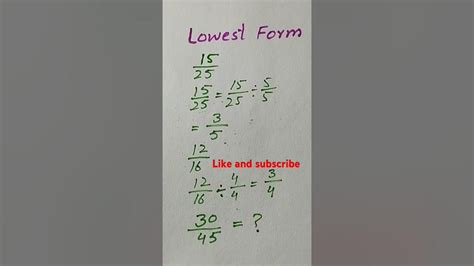 Lowest Form
15/25
15/25 = 15/25 ÷ 5/5
= 3/5
12/16
Like and subscribe
12/16 ÷ 4/4 = 3/4
30/45 = ?